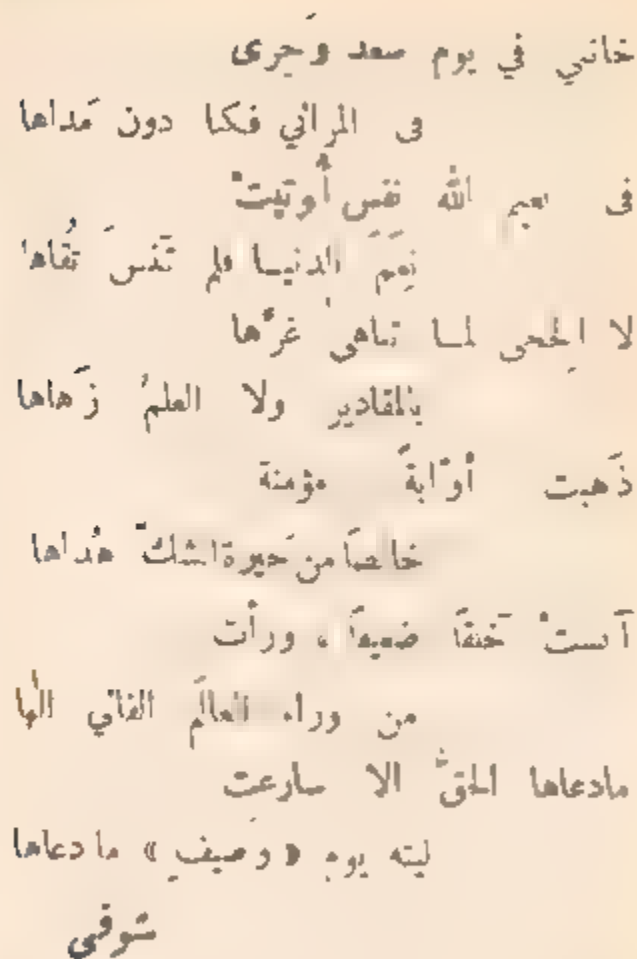 خانني في يوم سعد وَجرى
في المراثي فكبا دون مَداها
في نعيم الله نفس أُوتيتْ
نِعَمَ الدنيا فلم تَنسَ تُقاها
لا الِحجى لما تناهى غرّها
بالمقادير ولا العلمُ زَهاها
ذَهبت أوّابةً مؤمنة
خالصاً من حَيرة الشكّ هُداها
آنستْ خَلقاً ضعيفاً ، ورأت
من وراء العالَم الفاني إلها
مادعاها الحقّ الا سارعت
ليته يوم « وَصيفٍ » ما دعاها
شوقي